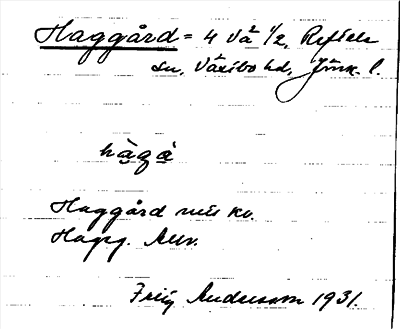 Haggård = 4 vå 1/2, Reftele
sn, Västbo hd, Jönk. l.
hàgà
Haggård
Hagg.
Fritz Andersson 1931.